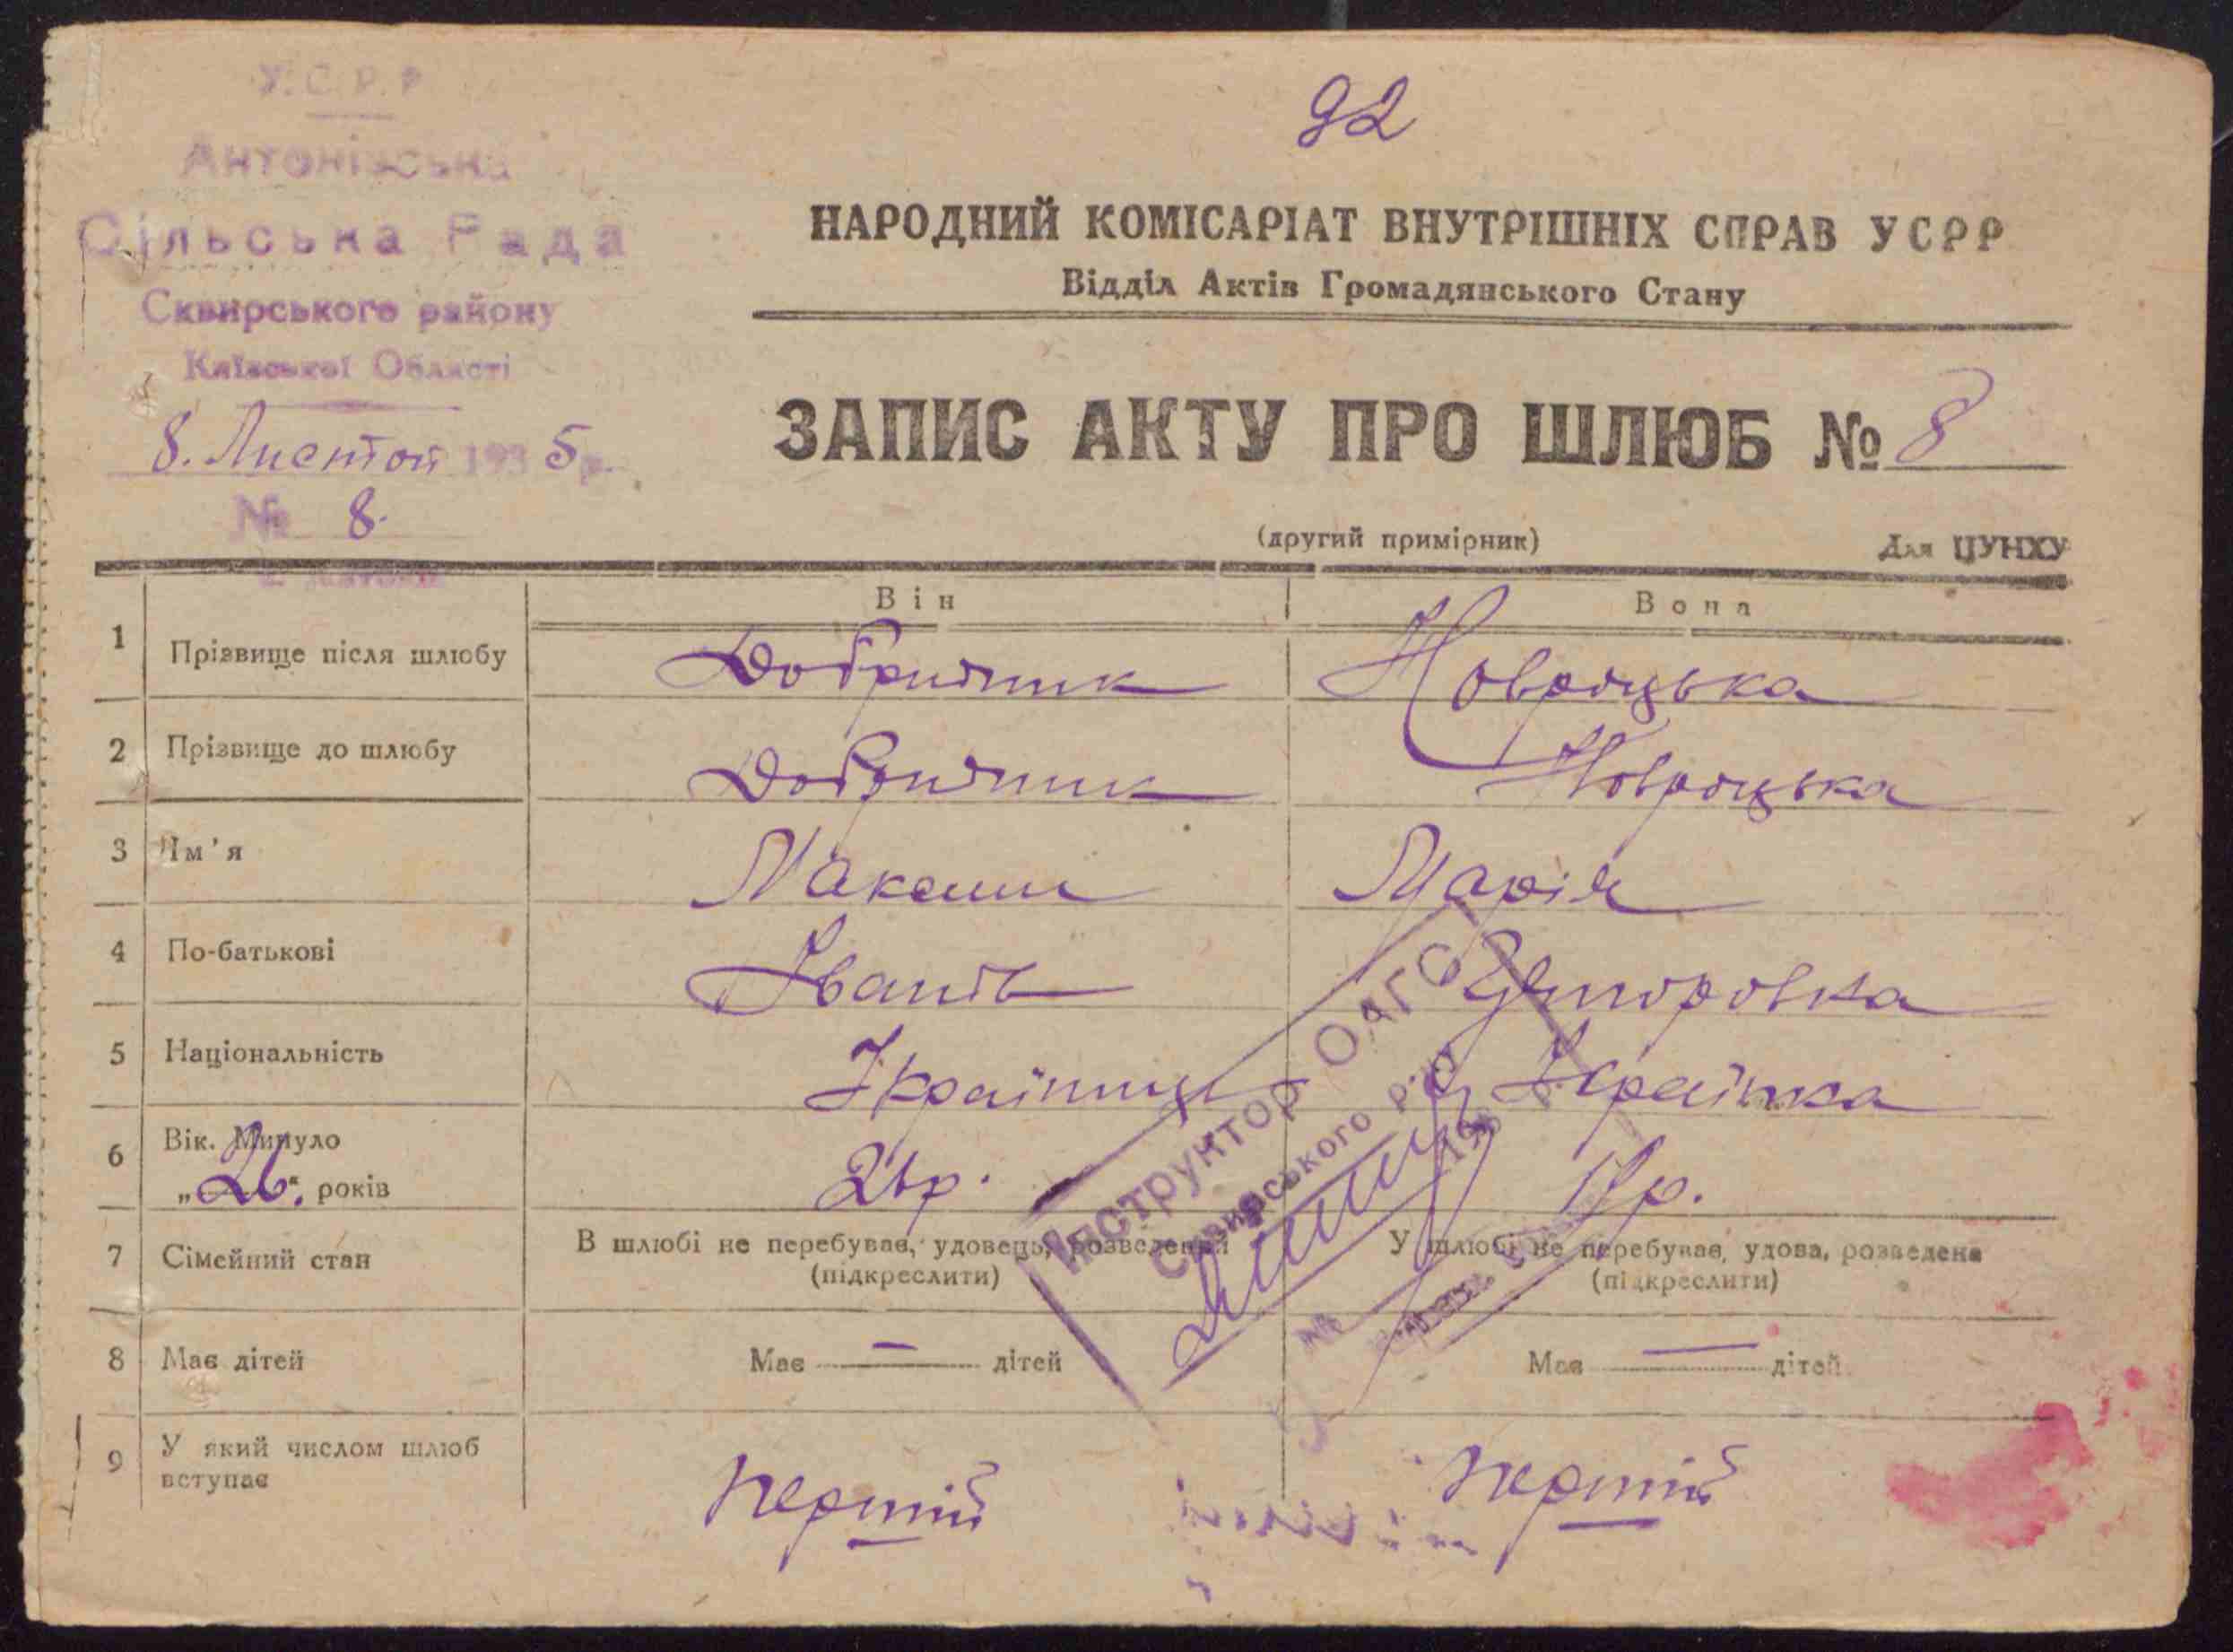 У.С.Р.Р.
Антонівська
Сільська Рада
Сквирського району
Київської Області
8. Листоп 1935 р.
№ 8.
92
НАРОДНИЙ КОМІСАРІАТ ВНУТРІШНІХ СПРАВ УСРР
Відділ Актів Громадянського Стану
ЗАПИС АКТУ ПРО ШЛЮБ № 8
(другий примірник)
Для ЦУНХУ
Він Вона
1 Прізвище після шлюбу Новроцька
2 Прізвище до шлюбу Новроцька
3 Ім'я Максим Марія
4 По-батькові Іванів
5 Національність Українець Українка
6 Вік. Минуло
„26“ років 26р. р.
7 Сімейний стан В шлюбі не перебував, удовець, розведений У шлюбі не перебував, удова, розведена
(підкреслити) (підкреслити)
8 Має дітей Має — дітей Має — дітей
9 У який числом шлюб
вступає
Першій Першій
Інструктор ОАГС
Сквирського р-ну
193
№